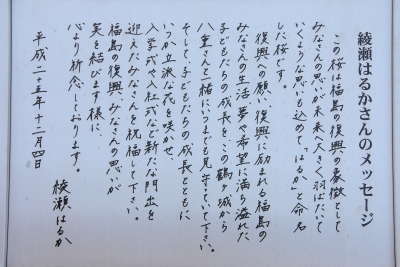 綾瀬はるかさんのメッセージ
この桜は福島の復興の象徴として
みなさんの思いが未来へ大きく羽ばたいて
いくような思いも込めて、「はるか」と命名
した桜です。
復興への願い、復興に励まれる福島の
みなさんの生活、夢や希望に満ち溢れた
子どもたちの成長を、この鶴ヶ城から
八重さんと桜に、いつまでも見守っていて下さい。
そして、子どもたちの成長とともに
いつか立派な花を咲かせ、
入学式や入社式など新たな門出を
迎えたみなさんを祝福して下さい。
福島の復興、みなさんの思いが
実を結びます様に、
心より祈念しております。
平成二十五年十二月四日
綾瀬はるか